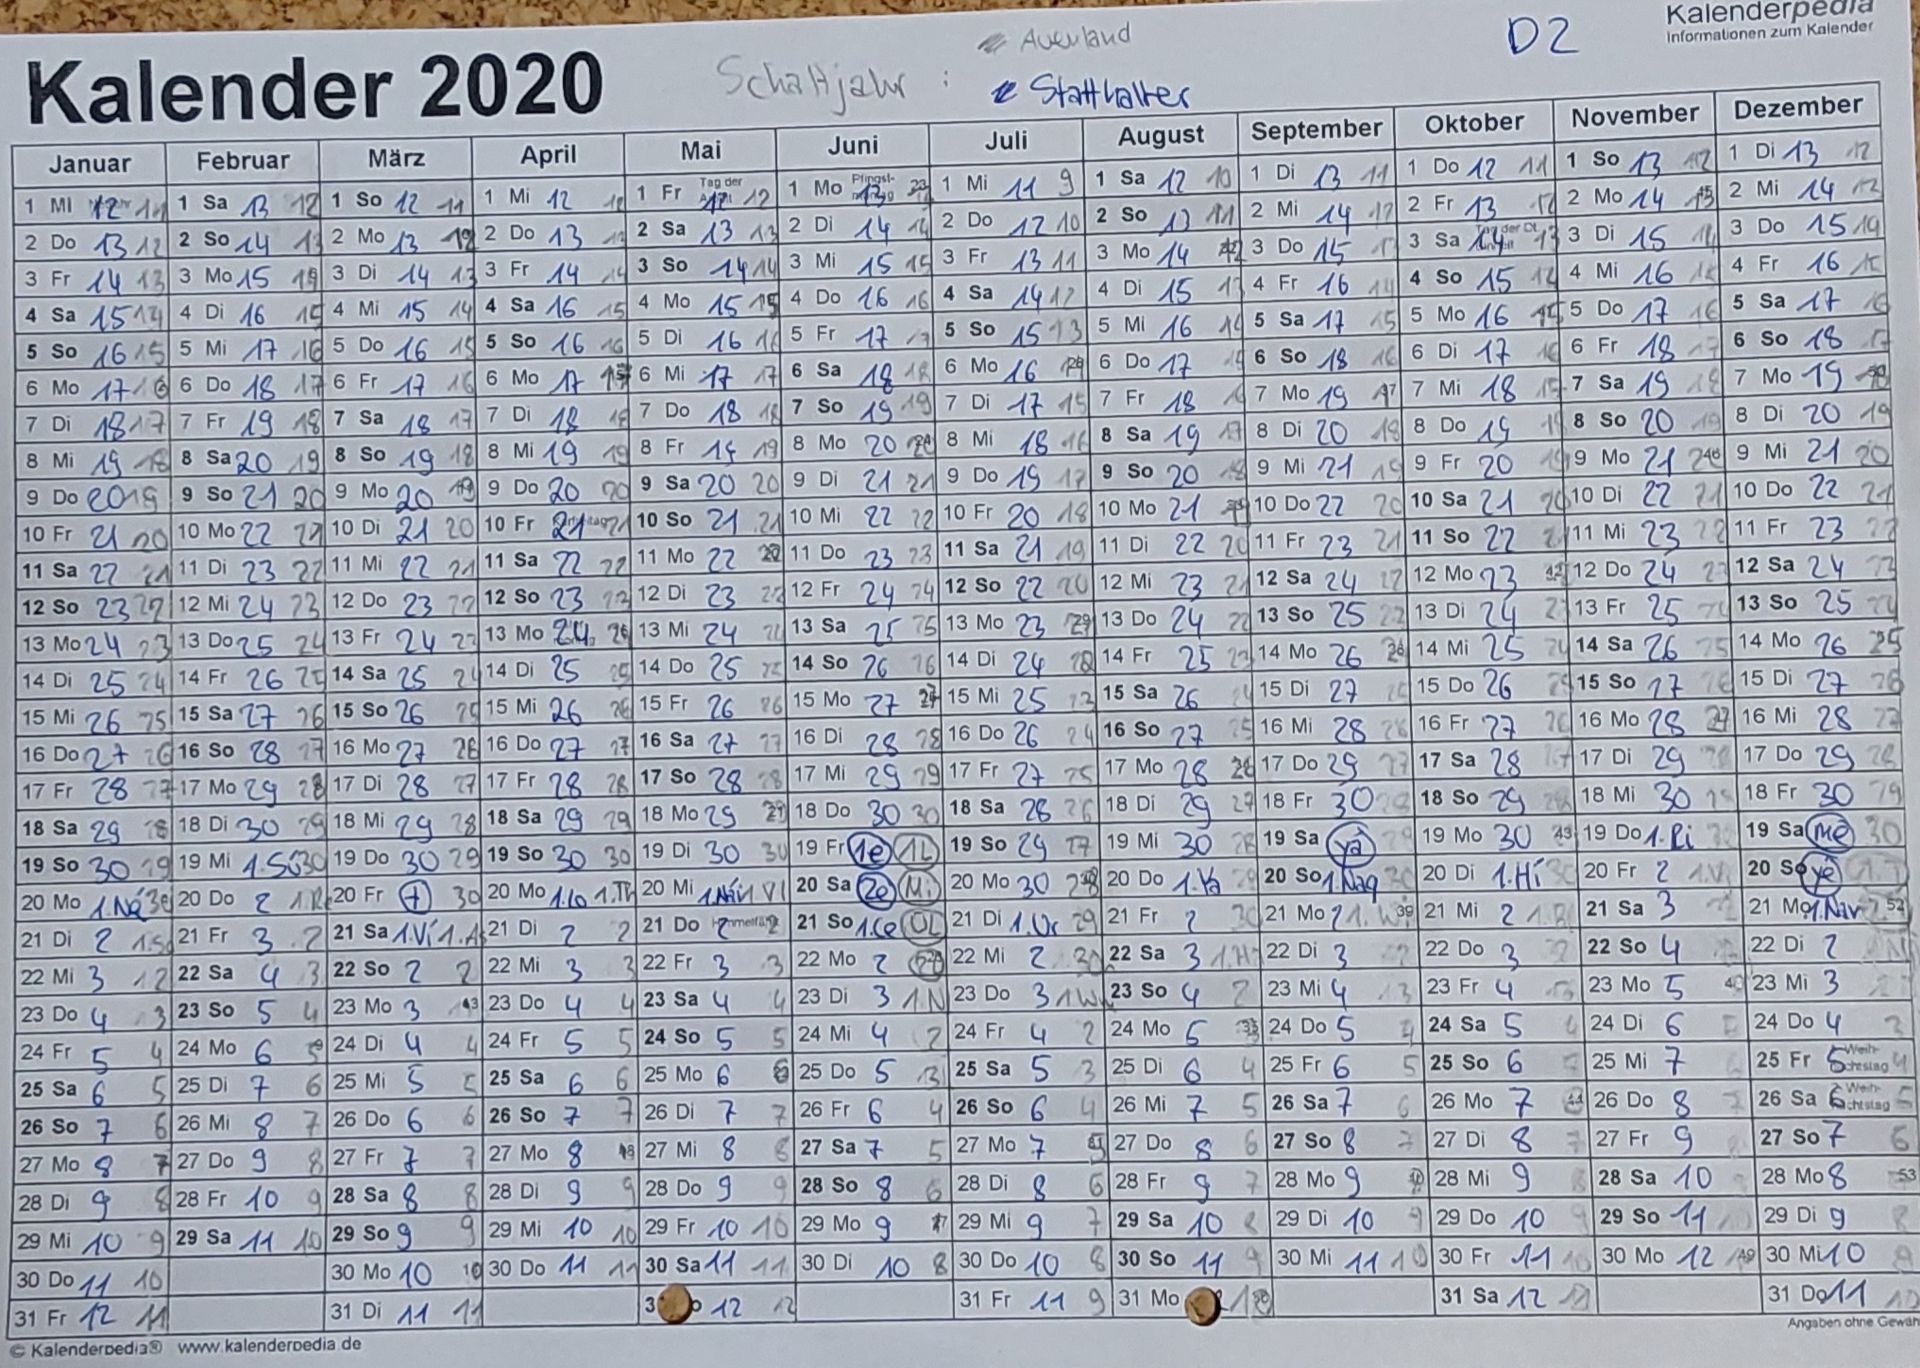 Kalenderpedia
Informationen zum Kalender
D2
Auenland
Kalender 2020
Schaltjahr :
Statthalter
Januar Februar März April Mai Juni Juli August September Oktober November Dezember
1 Mi 12 1 Sa 13 12 1 So 12 11 1 Mi 12 1 Fr Tag der 12 1 Mo Pfingst- 13 1 Mi 11 9 1 Sa 12 10 1 Di 13 11 1 Do 12 11 1 So 13 12 1 Di 13 12
2 Do 13 12 2 So 14 13 2 Mo 13 12 2 Do 13 2 Sa 13 13 2 Di 14 14 2 Do 12 10 2 So 13 11 2 Mi 14 12 2 Fr 13 12 2 Mo 14 2 Mi 14
3 Fr 14 13 3 Mo 15 3 Di 14 13 3 Fr 14 14 3 So 14 14 3 Mi 15 15 3 Fr 13 11 3 Mo 14 3 Do 15 3 Sa Tag der Dt. 14 13 3 Di 15 14 3 Do 15
4 Sa 15 14 4 Di 16 15 4 Mi 15 14 4 Sa 16 15 4 Mo 15 15 4 Do 16 16 4 Sa 14 12 4 Di 15 13 4 Fr 16 14 4 So 15 4 Mi 16 15 4 Fr 16 15
5 So 16 15 5 Mi 17 16 5 Do 16 15 5 So 16 16 5 Di 16 16 5 Fr 17 17 5 So 15 13 5 Mi 16 14 5 Sa 17 15 5 Mo 16 5 Do 17 16 5 Sa 17 16
6 Mo 17 16 6 Do 18 17 6 Fr 17 16 6 Mo 17 6 Mi 17 17 6 Sa 18 18 6 Mo 16 6 Do 17 15 6 So 18 16 6 Di 17 16 6 Fr 18 17 6 So 18 17
7 Di 18 17 7 Fr 19 18 7 Sa 18 17 7 Di 18 18 7 Do 18 18 7 So 19 19 7 Di 17 15 7 Fr 18 16 7 Mo 19 7 Mi 18 7 Sa 19 18 7 Mo 19
8 Mi 19 18 8 Sa 20 19 8 So 19 18 8 Mi 19 19 8 Fr 19 19 8 Mo 20 8 Mi 18 16 8 Sa 19 17 8 Di 20 18 8 Do 19 8 So 20 19 8 Di 20 19
9 Do 20 19 9 So 21 20 9 Mo 20 9 Do 20 20 9 Sa 20 20 9 Di 21 21 9 Do 19 17 9 So 20 18 9 Mi 21 19 9 Fr 20 19 9 Mo 21 9 Mi 21 20
10 Fr 21 20 10 Mo 22 21 10 Di 21 20 10 Fr 21 21 10 So 21 21 10 Mi 22 22 10 Fr 20 18 10 Mo 21 10 Do 22 20 10 Sa 21 20 10 Di 22 21 10 Do 22 21
11 Sa 22 21 11 Di 23 22 11 Mi 22 21 11 Sa 22 22 11 Mo 22 11 Do 23 23 11 Sa 21 19 11 Di 22 20 11 Fr 23 21 11 So 22 11 Mi 23 22 11 Fr 23 22
12 So 23 22 12 Mi 24 23 12 Do 23 22 12 So 23 23 12 Di 23 23 12 Fr 24 24 12 So 22 20 12 Mi 23 21 12 Sa 24 22 12 Mo 23 42 12 Do 24 23 12 Sa 24 23
13 Mo 24 23 13 Do 25 24 13 Fr 24 23 13 Mo 24 13 Mi 24 24 13 Sa 25 25 13 Mo 23 29 13 Do 24 22 13 So 25 13 Di 24 13 Fr 25 24 13 So 25 24
14 Di 25 24 14 Fr 26 25 14 Sa 25 24 14 Di 25 25 14 Do 25 25 14 So 26 26 14 Di 24 14 Fr 25 23 14 Mo 26 14 Mi 25 24 14 Sa 26 25 14 Mo 26 25
15 Mi 26 25 15 Sa 27 26 15 So 26 25 15 Mi 26 26 15 Fr 26 26 15 Mo 27 15 Mi 25 23 15 Sa 26 24 15 Di 27 25 15 Do 26 25 15 So 27 26 15 Di 27 26
16 Do 27 26 16 So 28 27 16 Mo 27 26 16 Do 27 27 16 Sa 27 27 16 Di 28 28 16 Do 26 24 16 So 27 25 16 Mi 28 26 16 Fr 27 26 16 Mo 28 27 16 Mi 28 27
17 Fr 28 27 17 Mo 29 28 17 Di 28 27 17 Fr 28 28 17 So 28 28 17 Mi 29 29 17 Fr 27 25 17 Mo 28 26 17 Do 29 27 17 Sa 28 27 17 Di 29 28 17 Do 29 28
18 Sa 29 28 18 Di 30 29 18 Mi 29 28 18 Sa 29 29 18 Mo 29 18 Do 30 30 18 Sa 28 26 18 Di 29 27 18 Fr 30 28 18 So 29 28 18 Mi 30 29 18 Fr 30 29
19 So 30 29 19 Mi 1.Só 30 19 Do 30 29 19 So 30 30 19 Di 30 30 19 Fr 1e 1L 19 So 29 27 19 Mi 30 28 19 Sa yá 29 19 Mo 30 43 19 Do 1.Ri 19 Sa me 30
20 Mo 1.Né 30 20 Do 2 20 Fr 30 20 Mo 1.Lo 1.Th 20 Mi 1.Ná 20 Sa 2e Mi 20 Mo 30 20 Do 1.Ya 20 So 1.Naq 30 20 Di 1.Hí 20 Fr 2 20 So yé
21 Di 2 21 Fr 3 2 21 Sa 1.Ví 1.A 21 Di 2 2 21 Do 2 2 21 So 1.Ce OL 21 Di 1.Ur 29 21 Fr 2 30 21 Mo 2 39 21 Mi 2 21 Sa 3 21 Mo 1.Nar 52
22 Mi 3 2 22 Sa 4 3 22 So 2 2 22 Mi 3 3 22 Fr 3 3 22 Mo 2 22 Mi 2 30 22 Sa 3 1.H 22 Di 3 22 Do 3 22 So 4 22 Di 2
23 Do 4 3 23 So 5 4 23 Mo 3 23 Do 4 4 23 Sa 4 4 23 Di 3 1.N 23 Do 3 1.W 23 So 4 2 23 Mi 4 3 23 Fr 4 23 Mo 5 23 Mi 3
24 Fr 5 4 24 Mo 6 24 Di 4 4 24 Fr 5 5 24 So 5 5 24 Mi 4 2 24 Fr 4 2 24 Mo 5 24 Do 5 24 Sa 5 24 Di 6 24 Do 4 3
25 Sa 6 5 25 Di 7 6 25 Mi 5 5 25 Sa 6 6 25 Mo 6 25 Do 5 3 25 Sa 5 3 25 Di 6 4 25 Fr 6 5 25 So 6 25 Mi 7 25 Fr 5 Weih- 4
26 So 7 6 26 Mi 8 7 26 Do 6 6 26 So 7 7 26 Di 7 7 26 Fr 6 4 26 So 6 4 26 Mi 7 5 26 Sa 7 6 26 Mo 7 26 Do 8 7 26 Sa 6 Weih- 5
27 Mo 8 7 27 Do 9 8 27 Fr 7 7 27 Mo 8 27 Mi 8 8 27 Sa 7 5 27 Mo 7 27 Do 8 6 27 So 8 7 27 Di 8 7 27 Fr 9 27 So 7 6
28 Di 9 8 28 Fr 10 9 28 Sa 8 8 28 Di 9 9 28 Do 9 9 28 So 8 6 28 Di 8 6 28 Fr 9 7 28 Mo 9 28 Mi 9 8 28 Sa 10 28 Mo 8 53
29 Mi 10 9 29 Sa 11 10 29 So 9 9 29 Mi 10 10 29 Fr 10 10 29 Mo 9 29 Mi 9 7 29 Sa 10 8 29 Di 10 9 29 Do 10 9 29 So 11 29 Di 9 8
30 Do 11 10 30 Mo 10 10 30 Do 11 11 30 Sa 11 11 30 Di 10 8 30 Do 10 8 30 So 11 9 30 Mi 11 10 30 Fr 11 10 30 Mo 12 49 30 Mi 10 9
31 Fr 12 11 31 Di 11 11 12 12 31 Fr 11 9 31 Mo 31 Sa 12 11 31 Do 11 10
© Kalenderpedia® www.kalenderpedia.de
Angaben ohne Gewäh